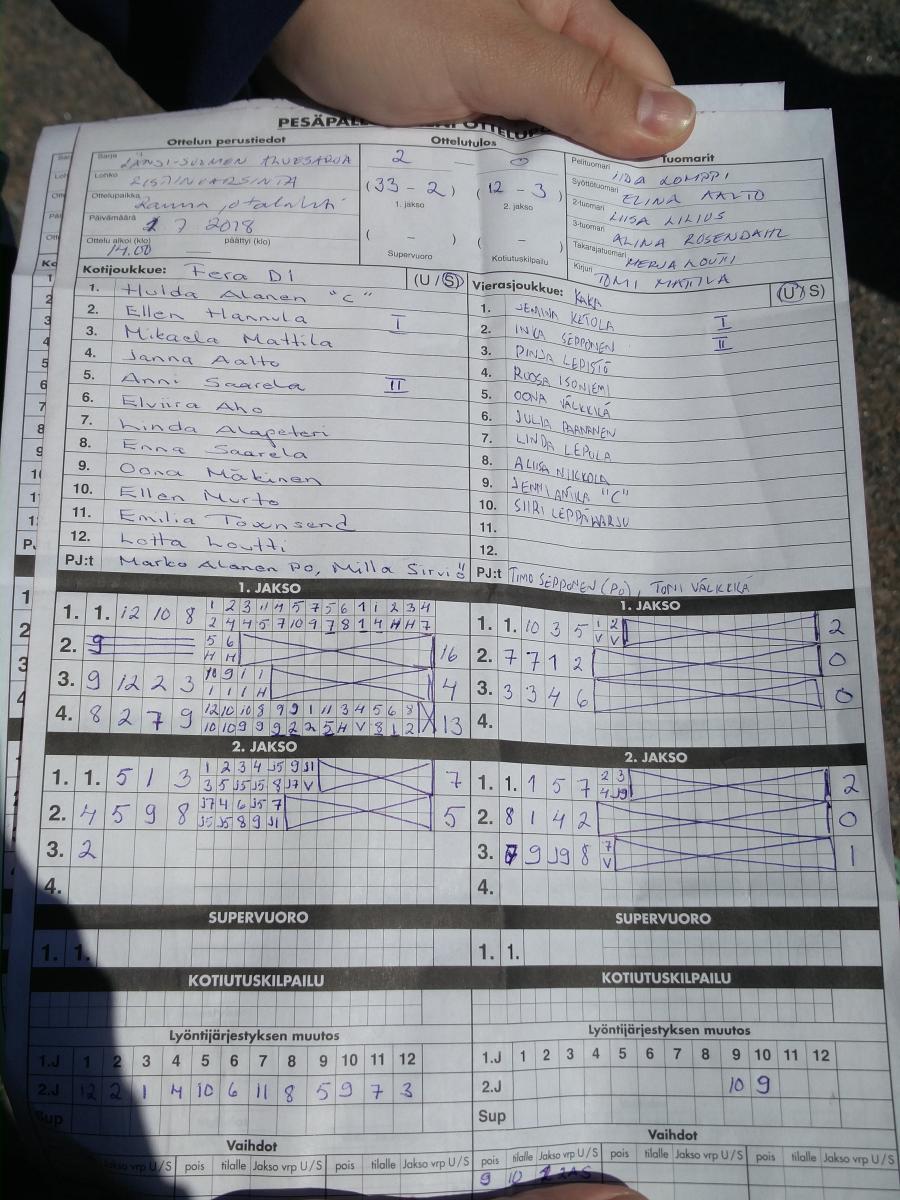 Ottelun perustiedot
Ottelutulos
Tuomarit
Sarja LÄNSI-SUOMEN ALUESARJA
Lohko RISTIINKARSINTA
Ottelupaikka Rauma, Otalahti
Päivämäärä 1 7 2018
Ottelu alkoi (klo) 14.00 päättyi (klo)
2 — 0
(33 - 2) (12 - 3)
1. jakso 2. jakso
( - ) ( - )
Supervuoro Kotiutuskilpailu
Pelituomari IIDA LOMPPI
Syöttötuomari ELINA AALTO
2-tuomari LIISA LILIUS
3-tuomari ALINA ROSENDAHL
Takarajatuomari MERJA LOUTTI
Kirjuri TOMI MATTILA
Kotijoukkue: Fera D1 (U / S)
1. Hulda Alanen "C"
2. Ellen Hannula I
3. Mikaela Mattila
4. Janna Aalto
5. Anni Saarela II
6. Elviira Aho
7. Linda Alapeteri
8. Enna Saarela
9. Oona Mäkinen
10. Ellen Murto
11. Emilia Townsend
12. Lotta Loutti
PJ:t Marko Alanen PO, Milla Sirviö
Vierasjoukkue: KAKA (U / S)
1. JEMINA KETOLA I
2. INKA SEPPONEN II
3. PINJA LEPISTÖ
4. ROOSA ISONIEMI
5. OONA VÄLKKILÄ
6. JULIA PAANANEN
7. LINDA LEPULA
8. ALIISA NIKKOLA
9. JENNI ANIKA "C"
10. SIIRI LEPPÄHARJU
11.
12.
PJ:t TIMO SEPPONEN (PO), TOMI VÄLKKILÄ
1. JAKSO
1. 1. 12 10 8 1 2 3 11 4 5 7 5 6 1 1 2 3 4
2 4 4 5 7 10 9 7 8 1 4 H H 7
2. 9 5 6 16
H H
3. 9 12 2 3 10 9 1 1 4
1 1 1 H
4. 8 2 7 9 12 10 10 8 9 9 1 11 3 4 5 6 8 13
10 10 9 9 9 2 2 5 H V 8 1 2
1. JAKSO
1. 1. 10 3 5 1 2 2
V V
2. 7 7 1 2 0
3. 3 3 4 6 0
4.
2. JAKSO
1. 1. 5 1 3 1 2 3 4 J5 9 J1 7
3 5 J5 J5 8 J7 V
2. 4 5 9 8 J7 4 6 J5 7 5
J5 J5 8 9 J1
3. 2
4.
2. JAKSO
1. 1. 1 5 7 2 3 2
4 J9
2. 8 1 4 2 0
3. 9 J9 8 7 1
V
4.
SUPERVUORO
1. 1.
SUPERVUORO
1. 1.
KOTIUTUSKILPAILU
KOTIUTUSKILPAILU
Lyöntijärjestyksen muutos
1.J 1 2 3 4 5 6 7 8 9 10 11 12
2.J 12 2 1 4 10 6 11 8 5 9 7 3
Sup
Lyöntijärjestyksen muutos
1.J 1 2 3 4 5 6 7 8 9 10 11 12
2.J 10 9
Sup
Vaihdot
Jakso vrp U / S pois tilalle Jakso vrp U / S pois tilalle Jakso vrp U / S
Vaihdot
pois tilalle Jakso vrp U / S pois tilalle Jakso vrp U / S pois tilalle Jakso vrp U / S
9 10 2AS